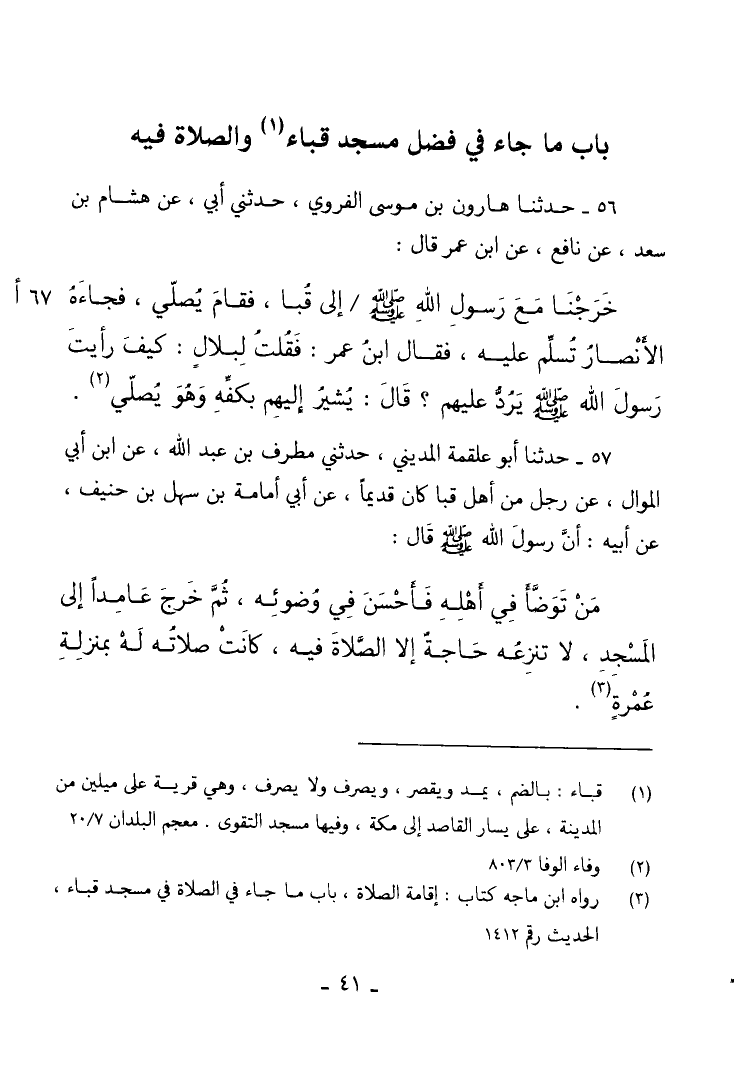 باب ما جاء في فضل مسجد قباء(١) والصلاة فيه
٥٦ ـ حدثنا هارون بن موسى الفروي ، حدثني أبي ، عن هشام بن
سعد ، عن نافع ، عن ابن عمر قال :
خَرَجْنَا مَعَ رَسولِ اللهِ ﷺ / إلى قُبا ، فقامَ يُصلّي ، فجاءَهُ ٦٧ أ
الأَنْصارُ تُسلِّم عليه ، فقال ابنُ عمر : فَقُلتُ لِبلالٍ : كيفَ رأيتَ
رَسولَ الله ﷺ يَرُدُّ عليهم ؟ قالَ : يُشيرُ إليهم بكفِّهِ وَهُوَ يُصلّي(٢) .
٥٧ ـ حدثنا أبو علقمة المديني ، حدثني مطرف بن عبد الله ، عن ابن أبي
الموال ، عن رجل من أهل قبا كان قديماً ، عن أبي أمامة بن سهل بن حنيف ،
عن أبيه : أنَّ رسولَ الله ﷺ قَال :
مَنْ تَوَضَّأَ فِي أَهْلِهِ فَأَحْسَنَ فِي وُضوئِه ، ثُمَّ خَرجَ عَامِداً إلى
المَسْجِدِ ، لا تنزِعُه حَاجةٌ إلا الصَّلاةَ فيه ، كانَتْ صلاتُه لَهْ بمنزلةِ
عُمْرةٍ(٣) .
(١) قباء : بالضم ، يمد ويقصر ، ويصرف ولا يصرف ، وهي قرية على ميلين من
المدينة ، على يسار القاصد إلى مكة ، وفيها مسجد التقوى . معجم البلدان ٢٠/٧
(٢) وفاء الوفا ٨٠٣/٣
(٣) رواه ابن ماجه كتاب : إقامة الصلاة ، باب ما جاء في الصلاة في مسجد قباء ،
الحديث رقم ١٤١٢
ـ ٤١ ـ